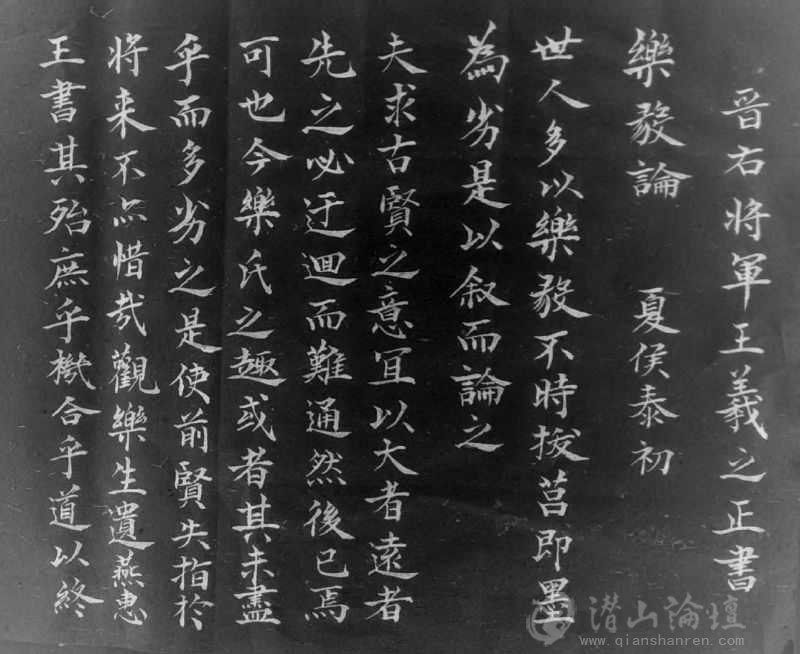 晋右將軍王羲之正書
樂毅論 夏侯泰初
世人多以樂毅不時拔莒即墨
為劣是以叙而論之
夫求古賢之意冝以大者遠者
先之必迂迴而難通然後已焉
可也今樂氏之趣或者其未盡
乎而多劣之是使前賢失指於
将来不亦惜㢤觀樂生遺燕惠
王書其殆庶乎機合乎道以終
潜山論壇
www.qianshanren.com